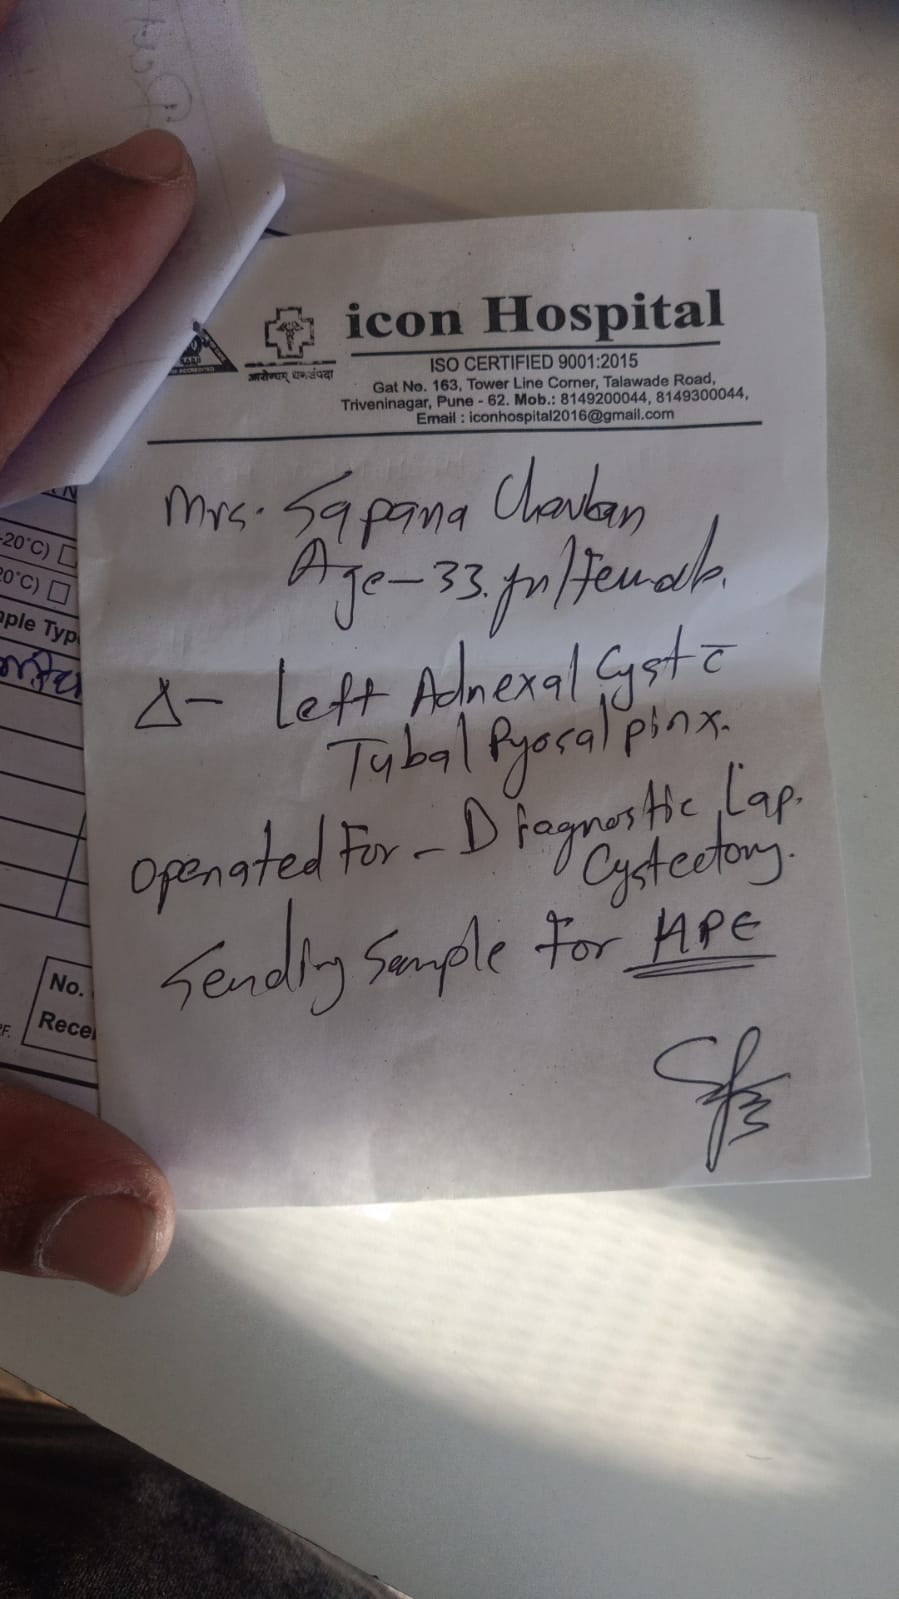 icon Hospital
आरोग्यम् धनसंपदा
ISO CERTIFIED 9001:2015
Gat No. 163, Tower Line Corner, Talawade Road,
Triveninagar, Pune - 62. Mob.: 8149200044, 8149300044,
Email : iconhospital2016@gmail.com
Mrs. Sapana Chavhan
Age - 33. yr/Female.
Δ - Left Adnexal Cyst c̄
Tubal Pyosalpinx.
Operated For - Diagnostic Lap.
Cystectomy.
Sending Sample For HPE
-20°C)
20°C)
No.